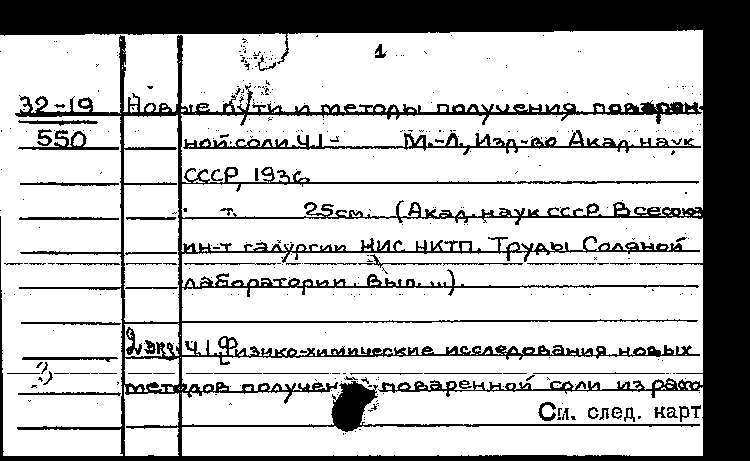 1
32-19 Новые пути и методы получения поварен-
550 ной соли. Ч.1- М.-Л., Изд-во Акад. наук
СССР, 1936
т. 25см. (Акад. наук СССР. Всесоюз
ин-т галургии НИС НКТП. Труды Соляной
лаборатории. Вып. ...).
2 экз. Ч.1. Физико-химические исследования новых
3
методов получен поваренной соли из расо
См. след. карт